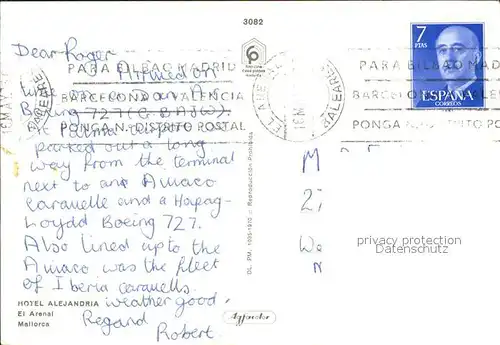 3082
Dear Roger
Arrived on
time on a Dan Air
Boeing 727
parked out a long
way from the terminal
next to and Aviaco
Caravelle and a Hapag-
Loydd Boeing 727.
Also lined up to the
Aviaco was the fleet
of Iberia caravells.
weather good.
Regard
Robert.
HOTEL ALEJANDRIA
El Arenal
Mallorca
PARA BILBAO MADRID
BARCELONA VALENCIA
PONGA N. DISTRITO POSTAL
DL. PM. 1035-1970 - Reproducción Prohibida
EL ARENAL
BALEARES
7
PTAS
ESPAÑA
CORREOS
PARA BILBAO MAD
BARCELO
PONGA N. DISTRITO PO
M
27
We
privacy protection
Datenschutz